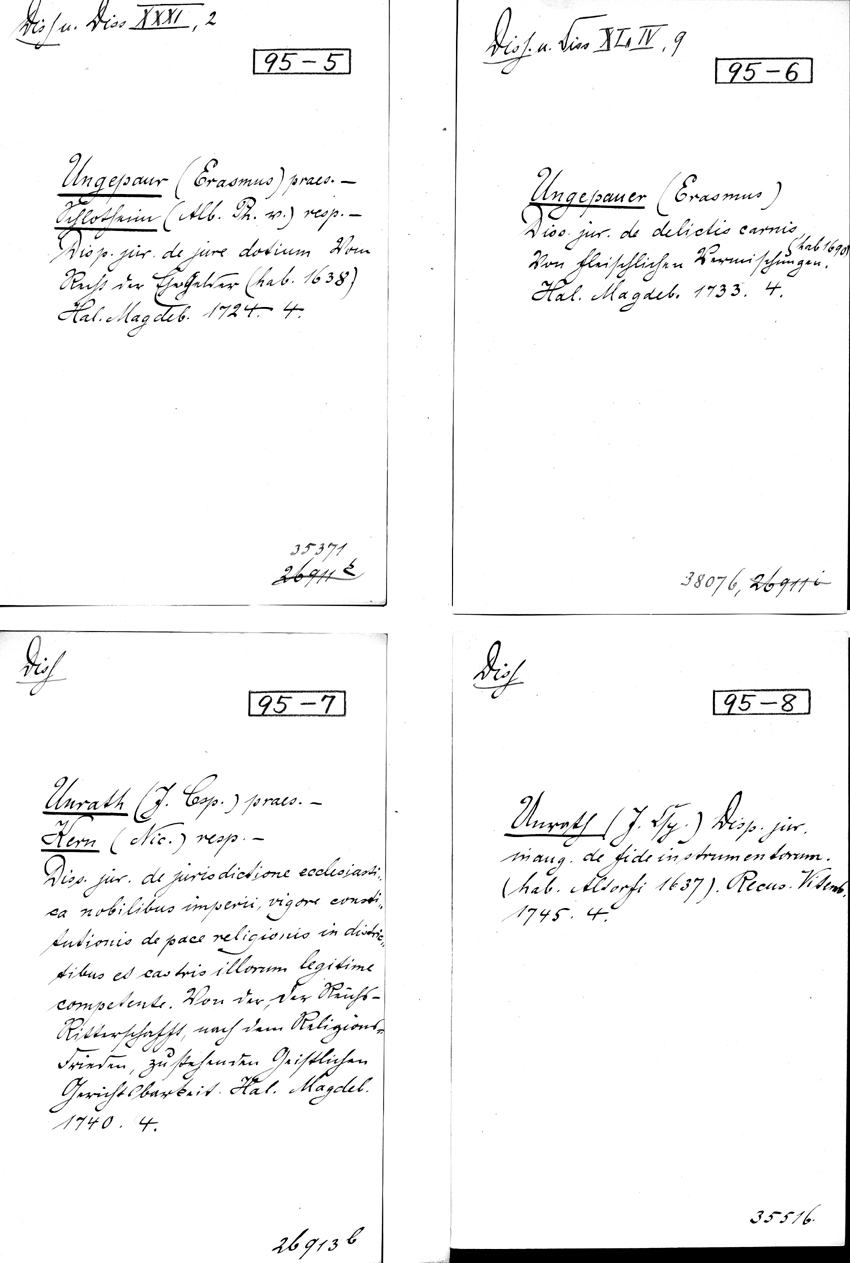 Diss u. Diss XXXI, 2
95-5
Ungepaur (Erasmus) praes. —
Schlotheim (Alb. Th. v.) resp. —
Disp. jur. de jure dotium Vom
Recht der Ehegelder (hab. 1638)
Hal. Magdeb. 1724. 4.
35371
26911
Diss. u. Diss XLIV, 9
95-6
Ungepauer (Erasmus)
Diss. jur. de delictis carnis
Von fleischlichen Vermischungen.
Hal. Magdeb. 1733. 4.
38076, 26911i
Diss
95-7
Unrath (J. Csp.) praes. —
Kern (Nic.) resp. —
Diss. jur. de jurisdictione ecclesiasti-
ca nobilibus imperii, vigore consti-
tutionis de pace religionis in distric-
tibus et castris illorum legitime
competente. Von der, der Reichs-
Ritterschafft, nach dem Religions-
Frieden, zustehenden Geistlichen
Gerichtsbarkeit. Hal. Magdeb.
1740. 4.
26913b
Diss
95-8
Unrath (J. Csp.) Disp. jur.
inaug. de fide instrumentorum.
(hab. Altorfi 1637). Recus. Vitemb.
1745. 4.
35516.